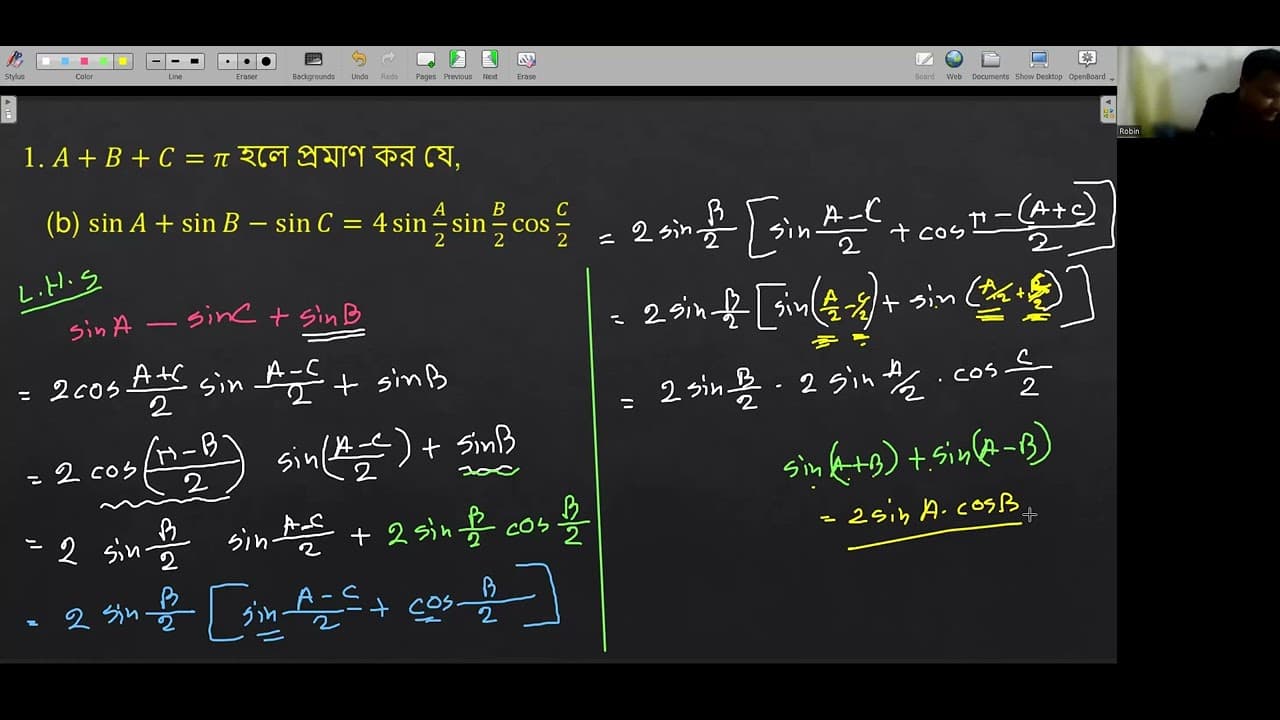 Stylus Color Line Eraser Backgrounds Undo Redo Pages Previous Next Erase Board Web Documents Show Desktop OpenBoard
Robin
1. A + B + C = π হলে প্রমাণ কর যে,
(b) sin A + sin B − sin C = 4 sin A/2 sin B/2 cos C/2
L.H.S
sinA − sinC + sinB
= 2cos A+C/2 sin A−C/2 + sinB
= 2 cos(π−B/2) sin(A−C/2) + sinB
= 2 sin B/2 sin A−C/2 + 2 sin B/2 cos B/2
= 2 sin B/2 [sin A−C/2 + cos B/2]
= 2 sin B/2 [sin A−C/2 + cos π−(A+C)/2]
= 2 sin B/2 [sin(A/2 − C/2) + sin(A/2 + C/2)]
= 2 sin B/2 · 2 sin A/2 · cos C/2
sin(A+B) + sin(A−B)
= 2 sin A · cosB